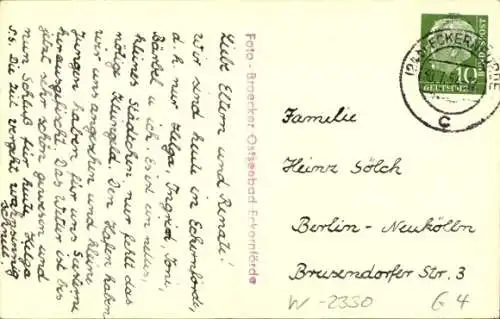 Liebe Eltern und Renate!
Wir sind heute in Eckernförde,
d. h. nur Helga, Ingrid, Toni,
Bärbel u. ich. Es ist ein nettes,
kleines Städtchen nur fehlt das
nötige Kleingeld. Den Hafen haben
wir uns angesehen und kleine
Jungen haben für uns Seesterne
herausgefischt. Das Wetter ist bis
jetzt sehr schön gewesen und
nun Schluß für heute. Helga
P.S. Die Zeit vergeht wahnsinnig
schnell.
Foto-Braecker Ostseebad Eckernförde
(24b) ECKERNFÖRDE
C
10
DEUTSCHE
POST
Familie
Heinz Gölch
Berlin-Neukölln
Brusendorfer Str. 3
W-2330 G4